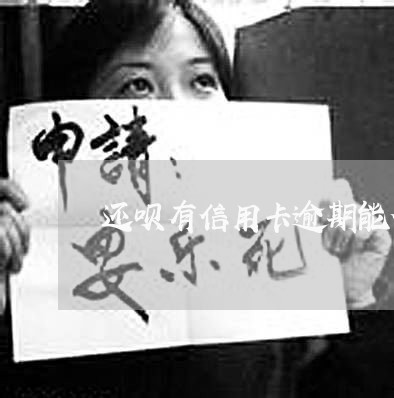 申請：
还呗有信用卡逾期能
安乐死